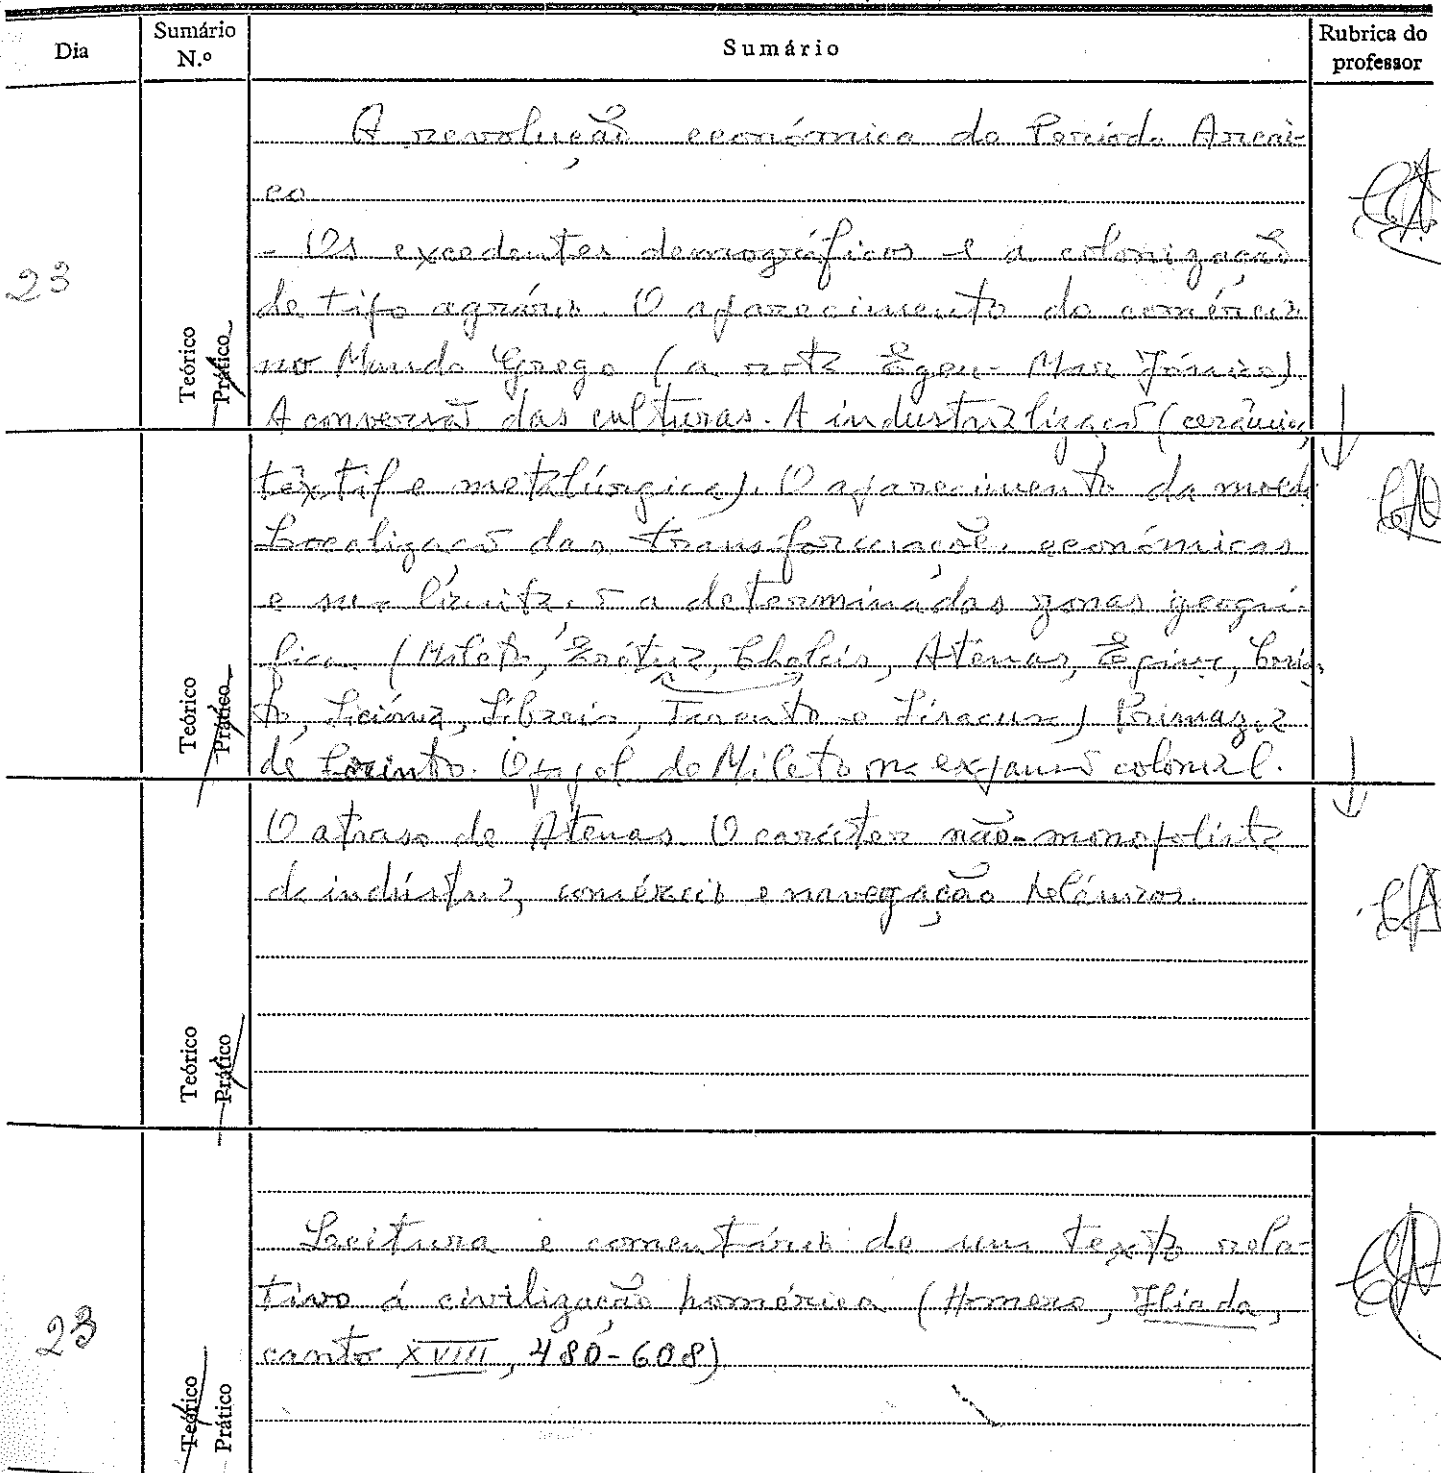 Dia
Sumário N.º
Sumário
Rubrica do professor
A revolução económica do Período Arcai-
co.
23
- Os excedentes demográficos e a colonização
de tipo agrário. O aparecimento do comércio
no Mundo Grego (a rota Egeu - Mar Jónico).
A conversão das culturas. A industrialização (cerâmica,
Teórico
Prático
têxtil e metalúrgica). O aparecimento da moeda
Localização das transformações económicas
e sua a determinadas zonas geográ-
ficas (Mileto, Erétria, Chalcis, Atenas, Egina, Corin-
to, Siciónia, Síbaris, Tarento e Siracusa) Primazia
de Corinto. O papel de Mileto na expansão colonial.
Teórico
Prático
O atraso de Atenas. O carácter não-monopolista
da indústria, comércio e navegação helénicos.
Teórico
Prático
Leitura e comentário de um texto rela-
tivo á civilização homérica (Homero, Ilíada,
23
canto XVIII, 480-608)
Teórico
Prático